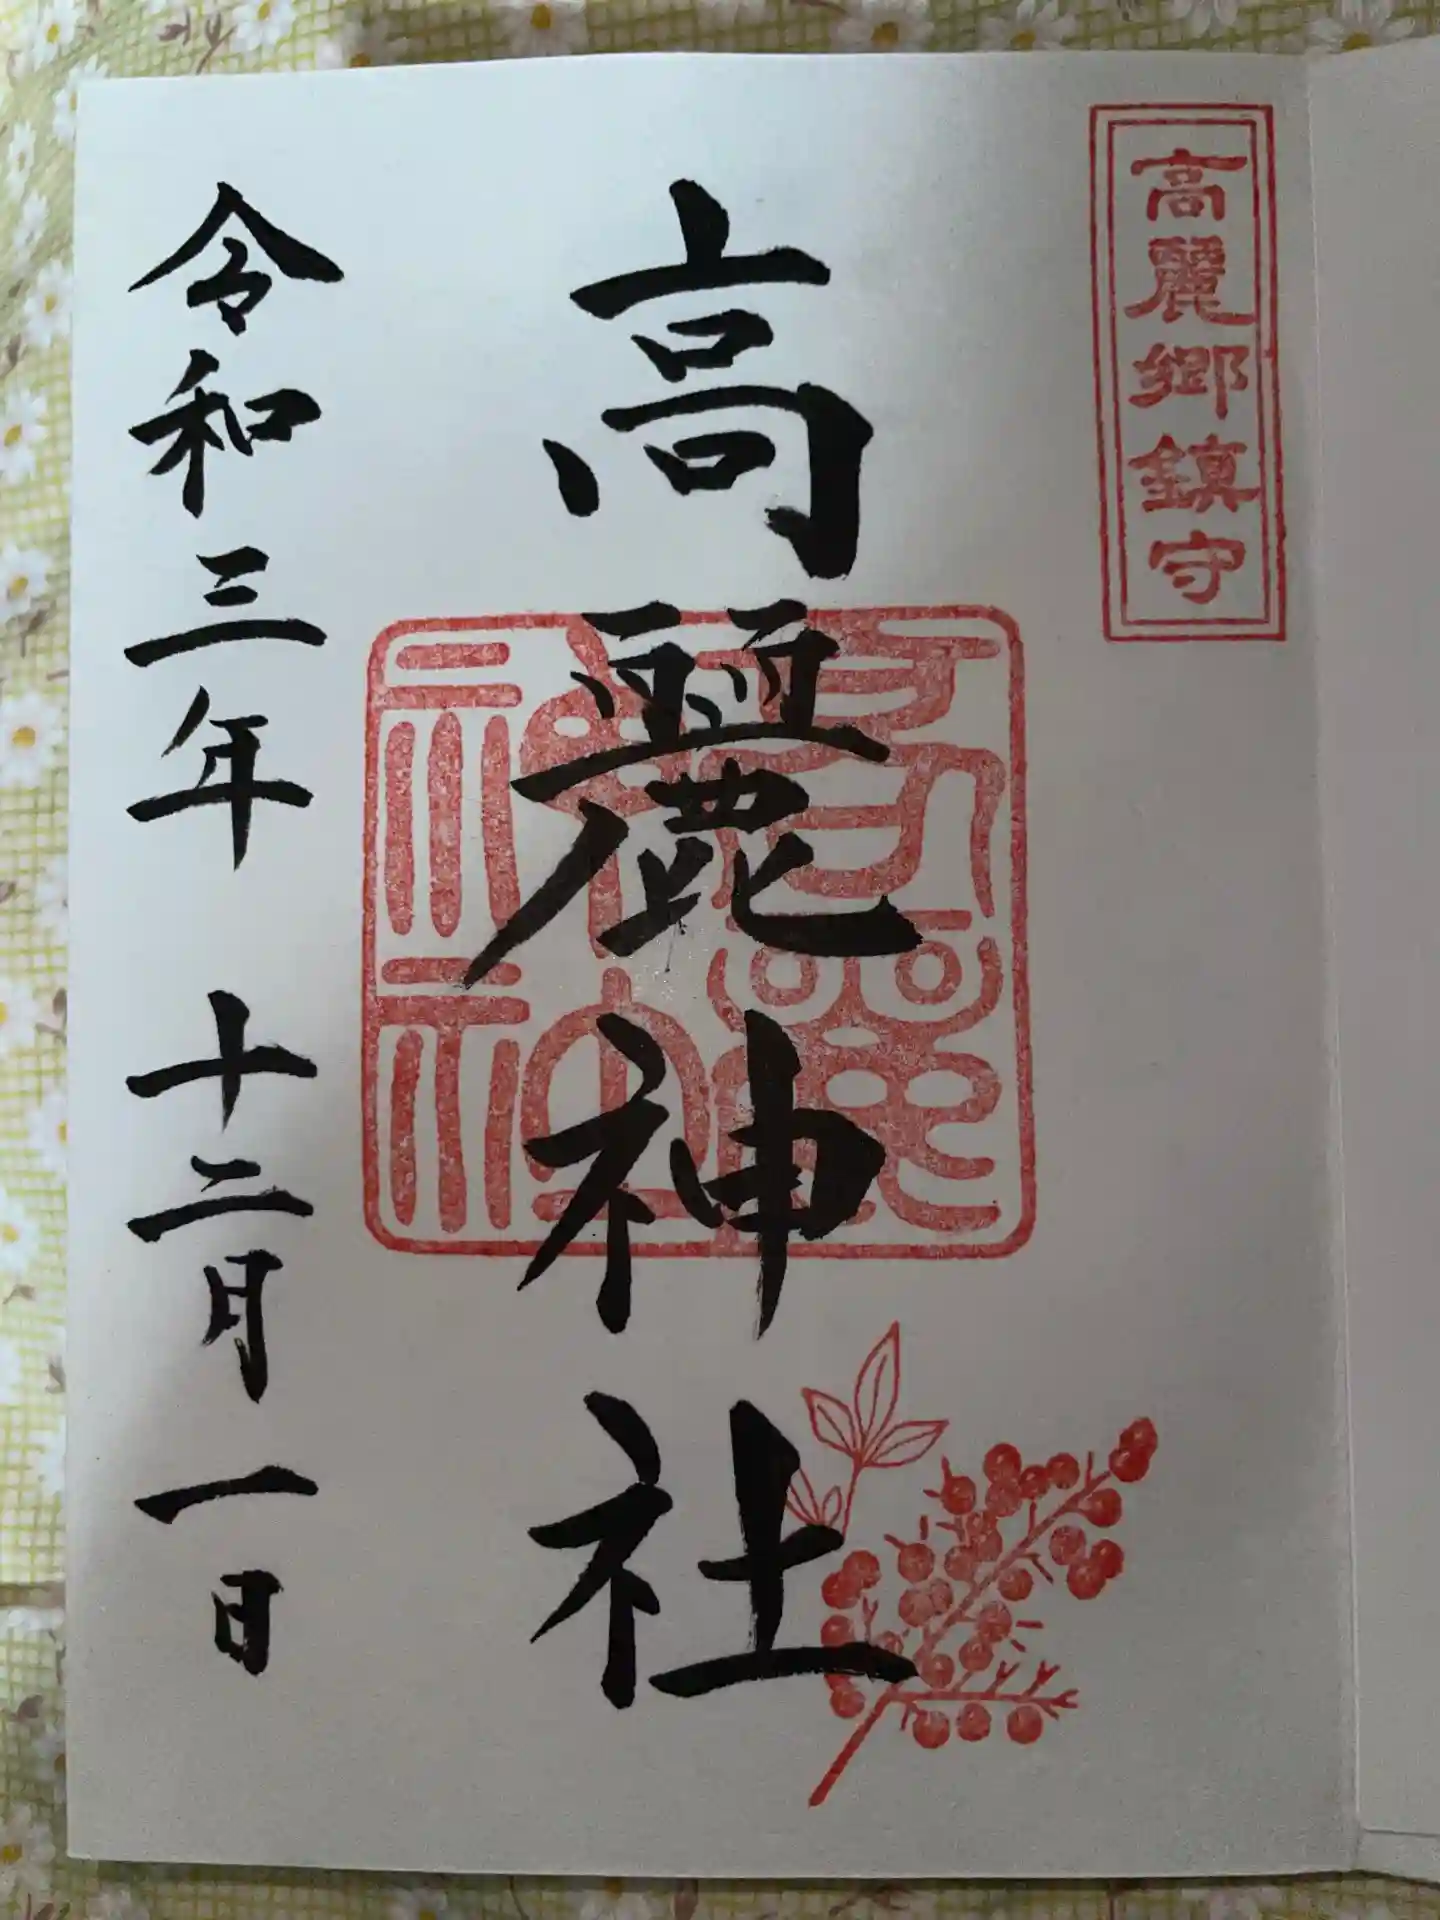 高麗郷鎮守
高麗神社
高麗神社
令和三年 十二月一日